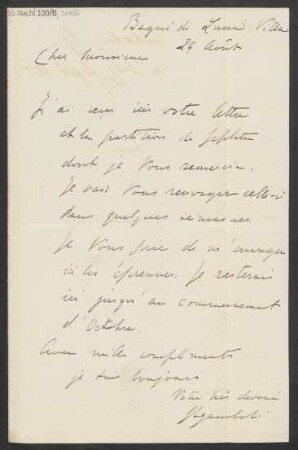 55 Nachl 100/B,
Bagni di Lucca. Villa
29 Août
Cher Monsieur
J'ai reçu ici votre lettre
et la partition de
dont je vous remercie.
Je vais vous renvoyer celle-ci
dans quelques semaines.
Je vous prie de m'envoyer
ici les épreuves. Je resterai
ici jusqu'au commencement
d'Octobre.
Avec mille compliments
je suis toujours
Votre très dévoué
GSgambati